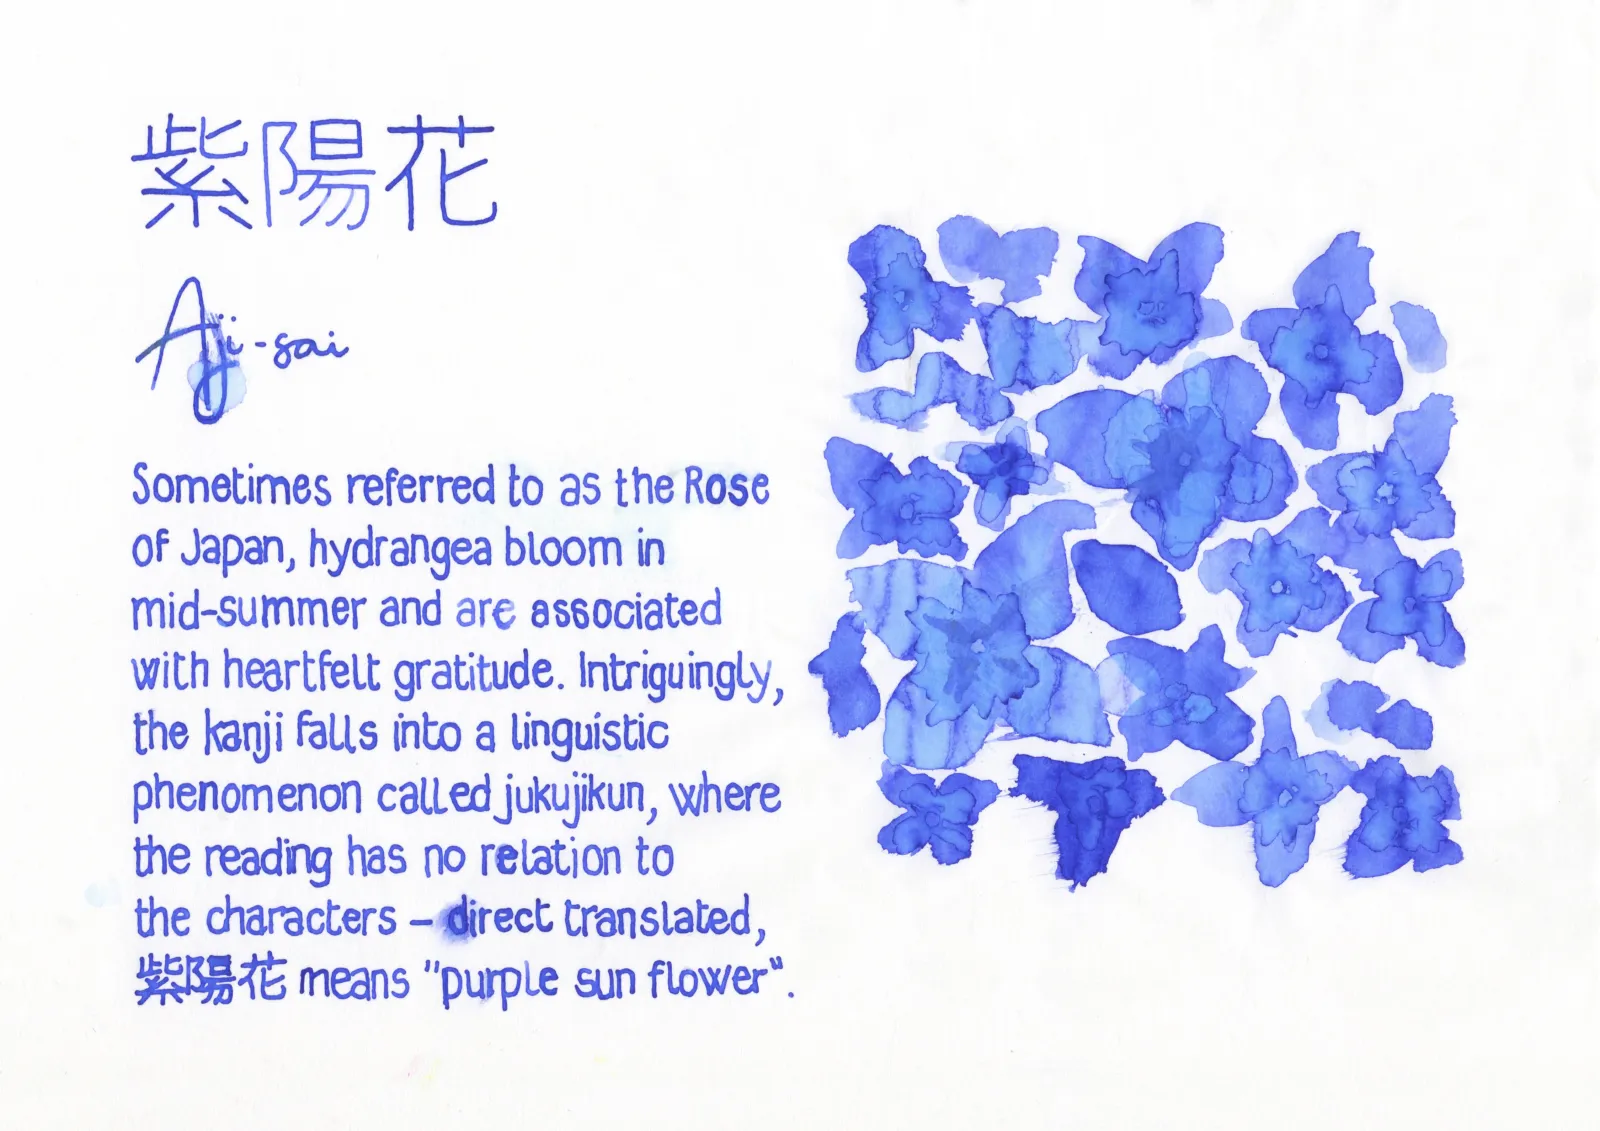 紫陽花
Aji-sai
Sometimes referred to as the Rose
of Japan, hydrangea bloom in
mid-summer and are associated
with heartfelt gratitude. Intriguingly,
the kanji falls into a linguistic
phenomenon called jukujikun, where
the reading has no relation to
the characters – direct translated,
紫陽花 means "purple sun flower".